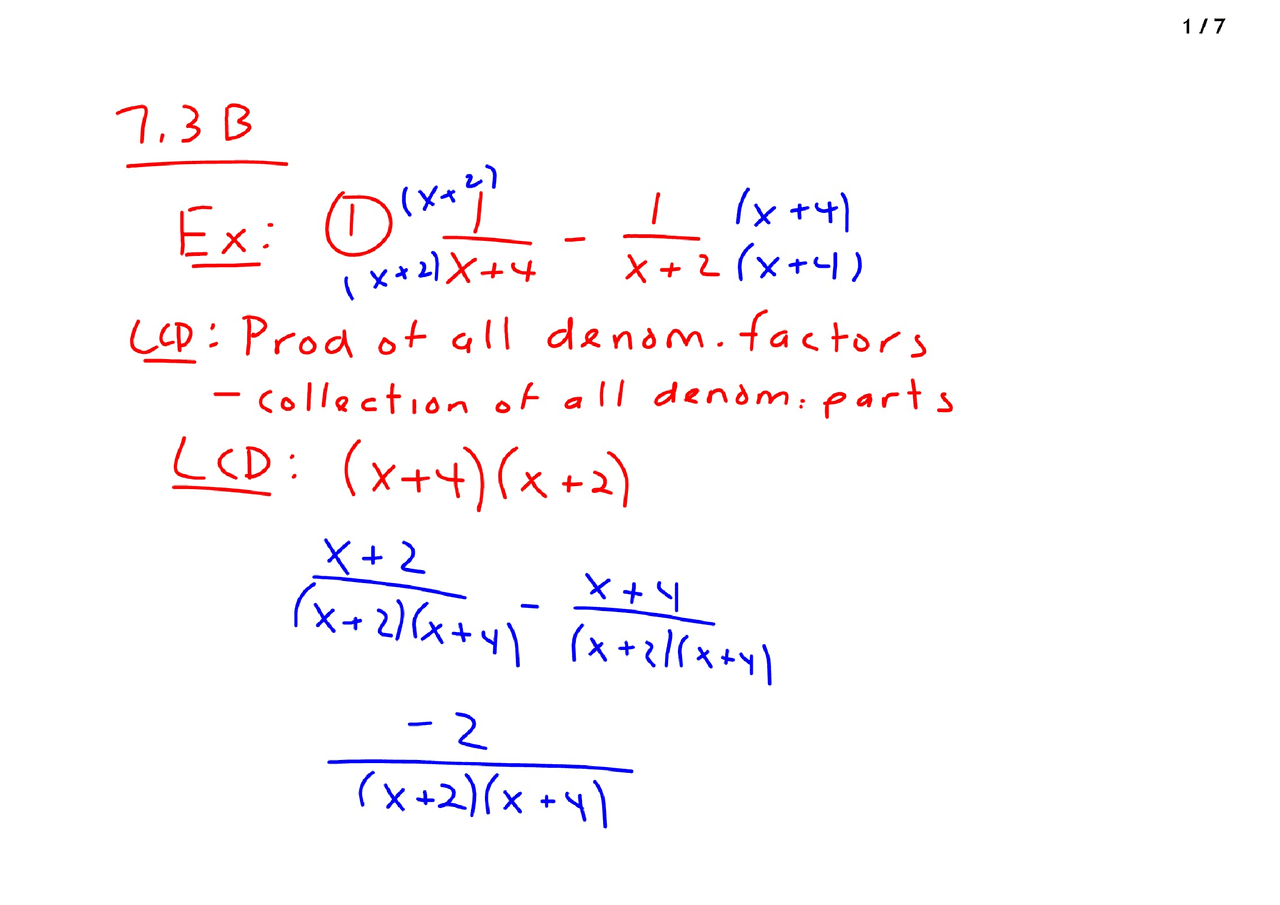 1 / 7
7.3 B
Ex: ① (x+2) 1 / (x+2) x+4 - 1 / x+2 (x+4) / (x+4)
LCD: Prod of all denom. factors
- collection of all denom. parts
LCD: (x+4)(x+2)
x+2 / (x+2)(x+4) - x+4 / (x+2)(x+4)
-2 / (x+2)(x+4)